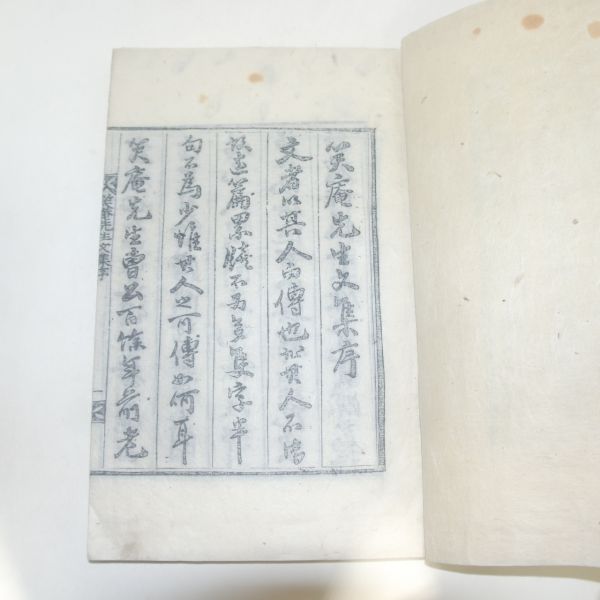 笑庵先生文集序
文者以其人而傳也非其人不傳
故連篇累牘不爲多隻字半
句不爲少惟其人之可傳如何耳
笑庵先生曺公百餘年前老
笑庵先生文集序
一